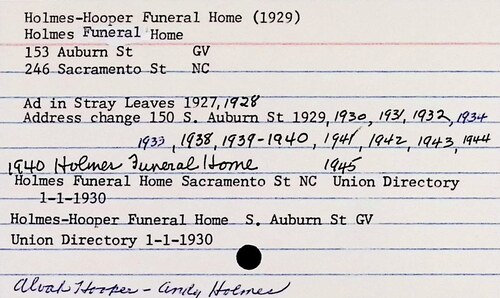 Holmes-Hooper Funeral Home (1929)
Holmes Funeral Home
153 Auburn St GV
246 Sacramento St NC
Ad in Stray Leaves 1927, 1928
Address change 150 S. Auburn St 1929, 1930, 1931, 1932, 1934
1933, 1938, 1939-1940, 1941, 1942, 1943, 1944
1940 Holmes Funeral Home 1945
Holmes Funeral Home Sacramento St NC Union Directory
1-1-1930
Holmes-Hooper Funeral Home S. Auburn St GV
Union Directory 1-1-1930
Alvah Hooper - Andy Holmes